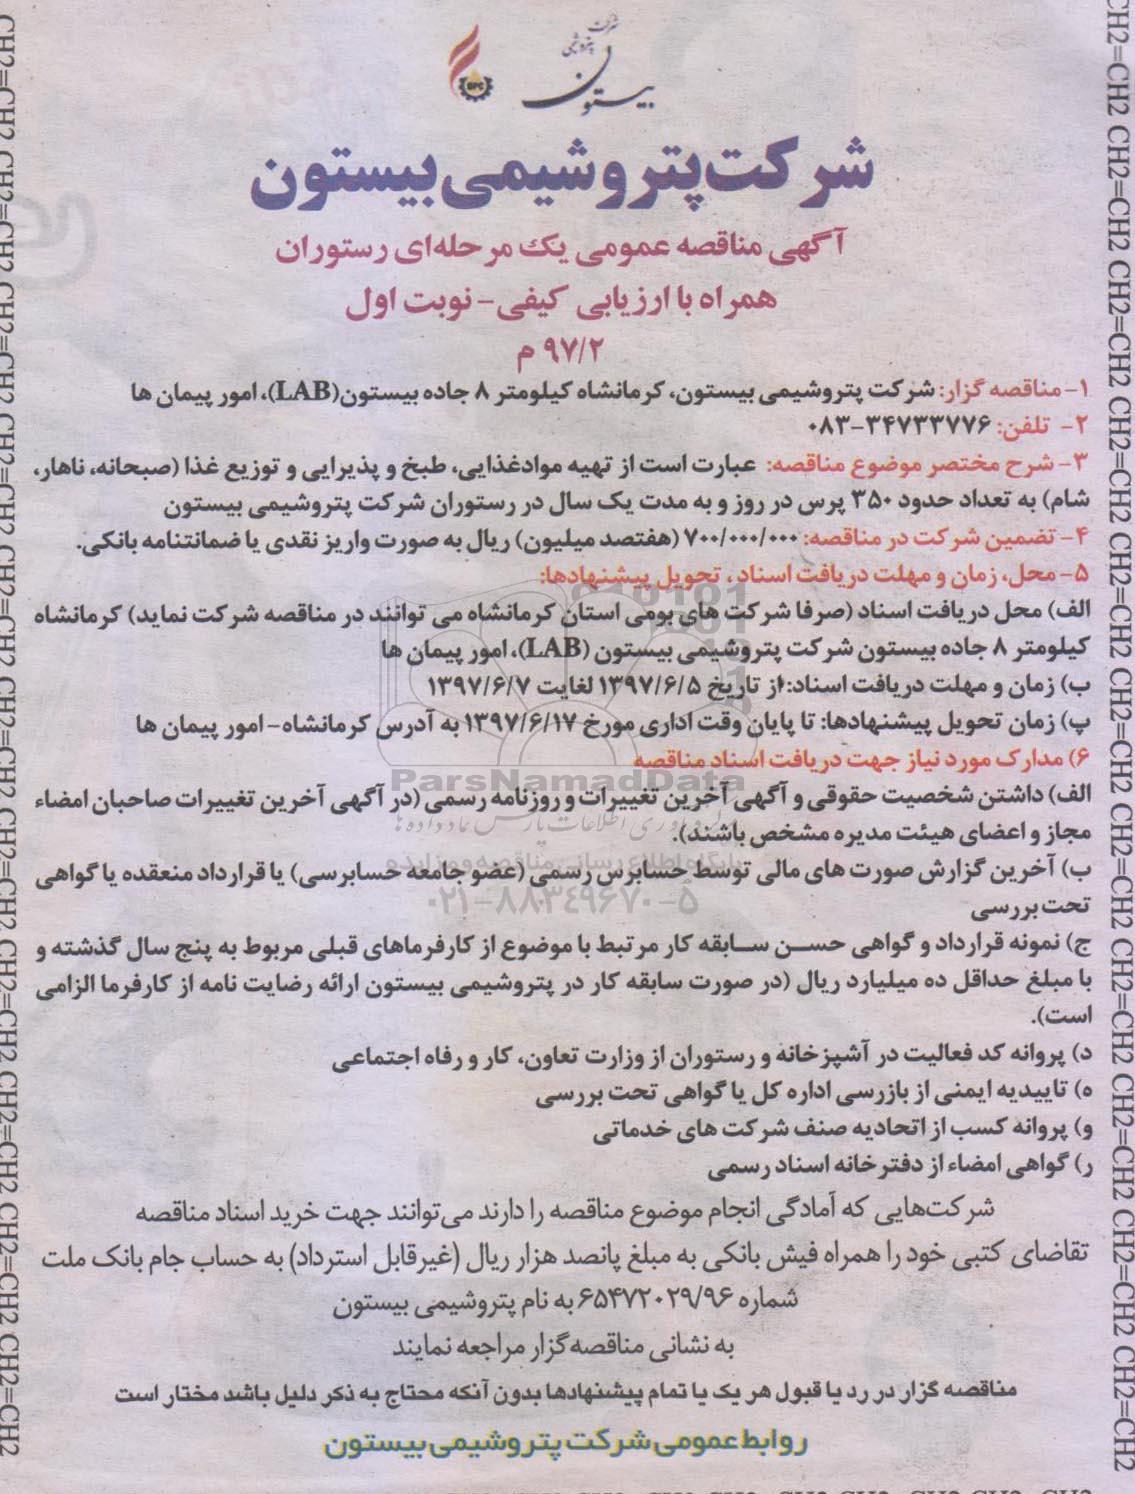 شرکت
پتروشیمی
بیستون
BPC
شرکت پتروشیمی بیستون
آگهی مناقصه عمومی یک مرحله‌ای رستوران
همراه با ارزیابی کیفی- نوبت اول
۹۷/۲ م
۱- مناقصه گزار: شرکت پتروشیمی بیستون، کرمانشاه کیلومتر ۸ جاده بیستون(LAB)، امور پیمان ها
۲- تلفن: ۳۴۷۳۳۷۷۶-۰۸۳
۳- شرح مختصر موضوع مناقصه: عبارت است از تهیه موادغذایی، طبخ و پذیرایی و توزیع غذا (صبحانه، ناهار،
شام) به تعداد حدود ۳۵۰ پرس در روز و به مدت یک سال در رستوران شرکت پتروشیمی بیستون
۴- تضمین شرکت در مناقصه: ۷۰۰/۰۰۰/۰۰۰ (هفتصد میلیون) ریال به صورت واریز نقدی یا ضمانتنامه بانکی.
۵- محل، زمان و مهلت دریافت اسناد ، تحویل پیشنهادها:
الف) محل دریافت اسناد (صرفا شرکت های بومی استان کرمانشاه می توانند در مناقصه شرکت نماید) کرمانشاه
کیلومتر ۸ جاده بیستون شرکت پتروشیمی بیستون (LAB)، امور پیمان ها
ب) زمان و مهلت دریافت اسناد: از تاریخ ۱۳۹۷/۶/۵ لغایت ۱۳۹۷/۶/۷
پ) زمان تحویل پیشنهادها: تا پایان وقت اداری مورخ ۱۳۹۷/۶/۱۷ به آدرس کرمانشاه- امور پیمان ها
۶) مدارک مورد نیاز جهت دریافت اسناد مناقصه
ParsNamadData
الف) داشتن شخصیت حقوقی و آگهی آخرین تغییرات و روزنامه رسمی (در آگهی آخرین تغییرات صاحبان امضاء
مجاز و اعضای هیئت مدیره مشخص باشند).
پایگاه اطلاع رسانی مناقصه و مزایده
ب) آخرین گزارش صورت های مالی توسط حسابرس رسمی (عضو جامعه حسابرسی) یا قرارداد منعقده یا گواهی
تحت بررسی
۰۲۱-۸۸۳۴۹۶۷۰-۵
ج) نمونه قرارداد و گواهی حسن سابقه کار مرتبط با موضوع از کارفرماهای قبلی مربوط به پنج سال گذشته و
با مبلغ حداقل ده میلیارد ریال (در صورت سابقه کار در پتروشیمی بیستون ارائه رضایت نامه از کارفرما الزامی
است).
د) پروانه کد فعالیت در آشپزخانه و رستوران از وزارت تعاون، کار و رفاه اجتماعی
ه) تاییدیه ایمنی از بازرسی اداره کل یا گواهی تحت بررسی
و) پروانه کسب از اتحادیه صنف شرکت های خدماتی
ر) گواهی امضاء از دفترخانه اسناد رسمی
شرکت‌هایی که آمادگی انجام موضوع مناقصه را دارند می‌توانند جهت خرید اسناد مناقصه
تقاضای کتبی خود را همراه فیش بانکی به مبلغ پانصد هزار ریال (غیرقابل استرداد) به حساب جام بانک ملت
شماره ۶۵۴۷۲۰۲۹/۹۶ به نام پتروشیمی بیستون
به نشانی مناقصه‌گزار مراجعه نمایند
مناقصه گزار در رد یا قبول هر یک یا تمام پیشنهادها بدون آنکه محتاج به ذکر دلیل باشد مختار است
روابط عمومی شرکت پتروشیمی بیستون